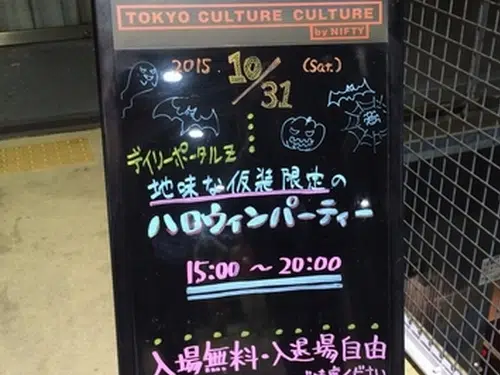 TOKYO CULTURE CULTURE
by NIFTY
2015. 10/31 (Sat.)
デイリーポータルZ
地味な仮装限定の
ハロウィンパーティー
15:00 ~ 20:00
入場無料・入退場自由
ください